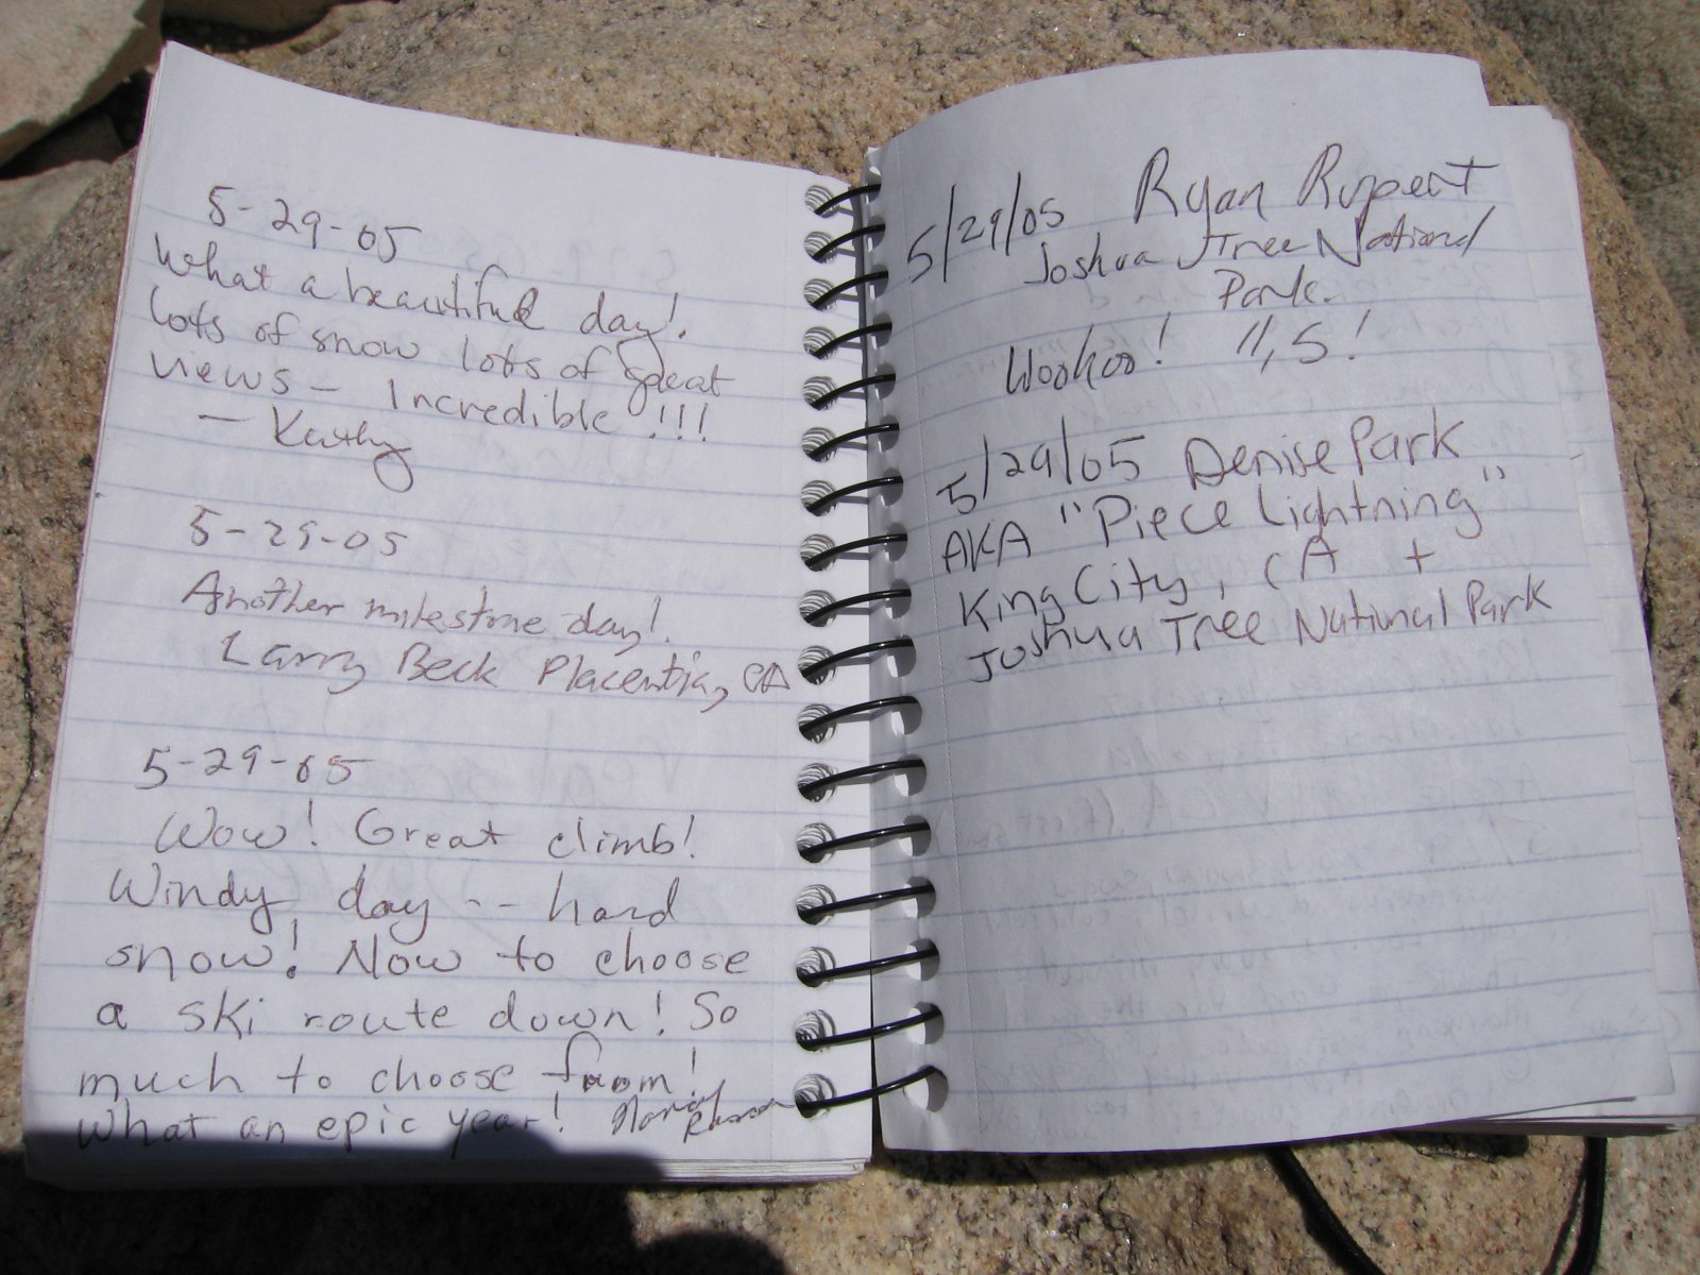 5-29-05
What a beautiful day!
lots of snow lots of great
views - Incredible!!!
- Kathy
5-29-05
Another milestone day!
Larry Beck Placentia, CA
5-29-05
Wow! Great climb!
Windy day -- hard
snow! Now to choose
a ski route down! So
much to choose from!
What an epic year!
5/29/05 Ryan Rupert
Joshua Tree National
Park.
Woohoo! 11,5!
5/29/05 Denise Park
AKA "Piece Lightning"
King City, CA +
Joshua Tree National Park